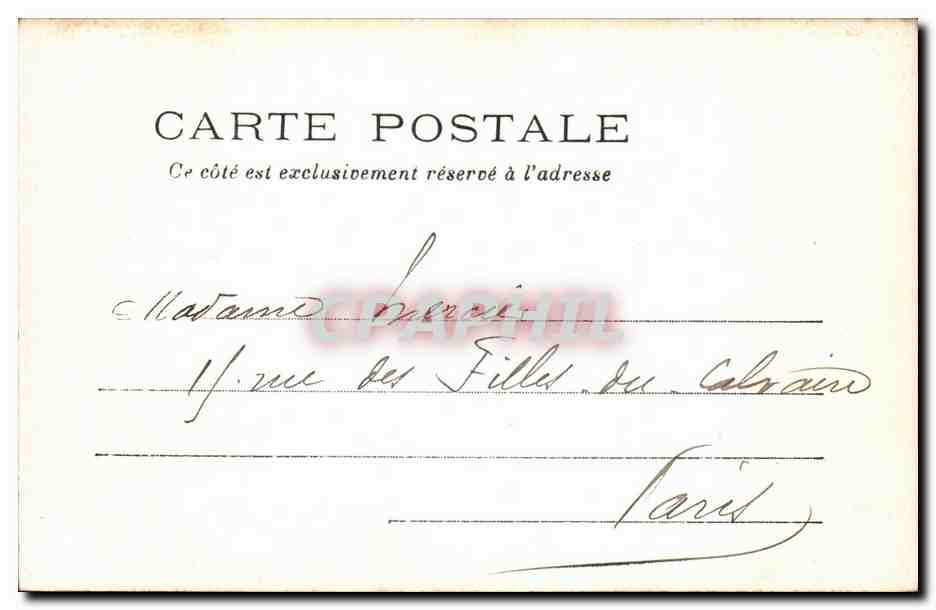 CARTE POSTALE
Ce côté est exclusivement réservé à l'adresse
Madame Mercier
CPAPHIL
15 rue des Filles du Calvaire
Paris